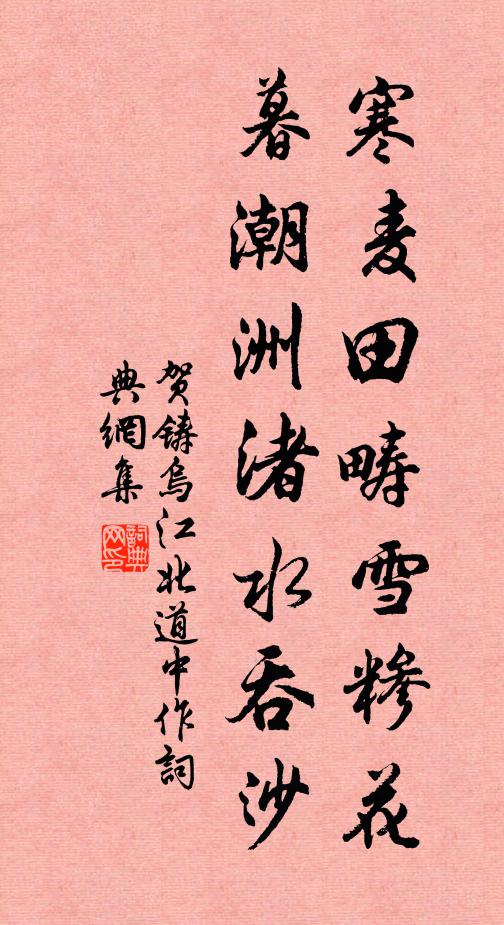 寒麦田畴雪糁花
暮潮洲渚水吞沙
贺铸乌江北道中作詞
典網集
詞典网印